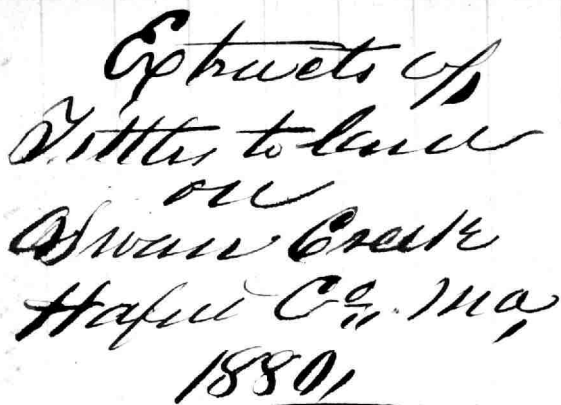 Extracts of
Tittles to land
on
Swan Creek
Haford Co,, Md,
1880,